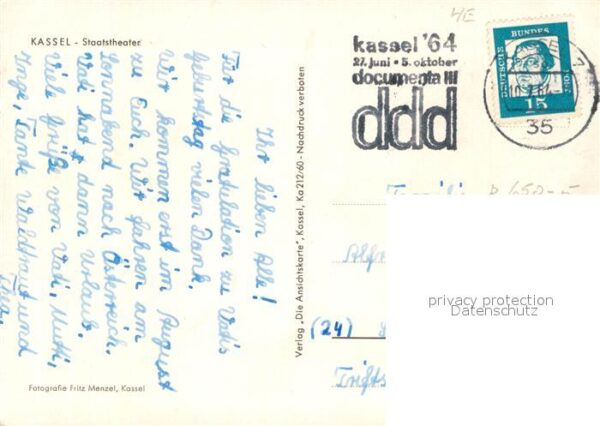 KASSEL - Staatstheater
Ihr lieben Alle!
Für die Gratulation zu Vati's
Geburtstag vielen Dank.
Wir kommen erst im August
zu Euch. Wir fahren am
Sonnabend nach Österreich.
Vati hat dann Urlaub.
Viele Grüße von Vati, Mutti,
Inge, Tante Waldtraut und
Thea.
Fotografie Fritz Menzel, Kassel
Verlag „Die Ansichtskarte", Kassel, Ka 212/60 - Nachdruck verboten
4E
kassel '64
27. juni • 5. oktober
documenta III
ddd
DEUTSCHE BUNDESPOST
15
35
Familie
Alfr
(24)
Trifts
privacy protection
Datenschutz